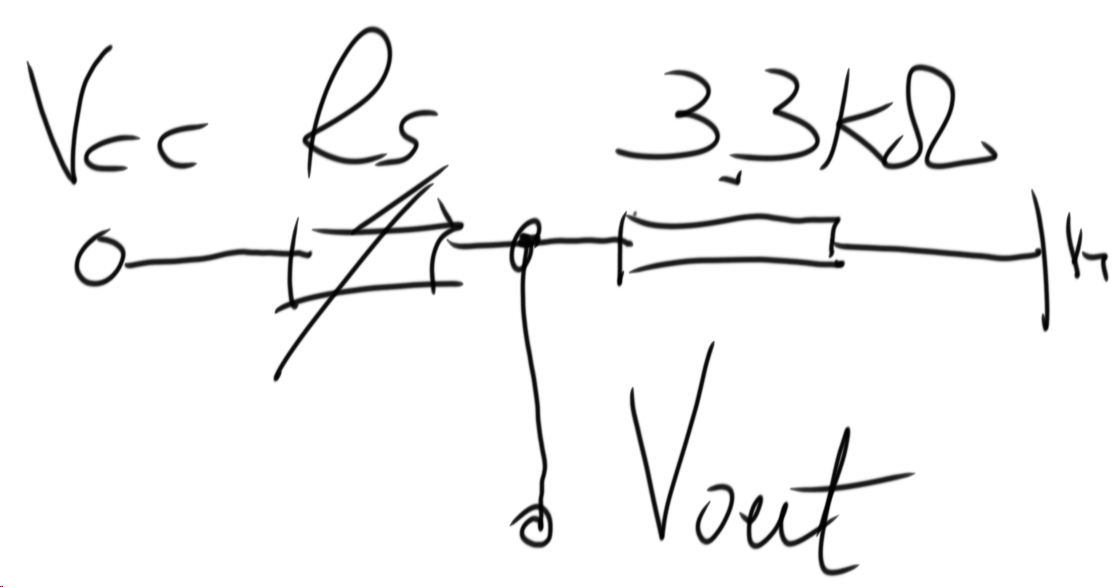 Vcc Rs 3.3kΩ
Vout